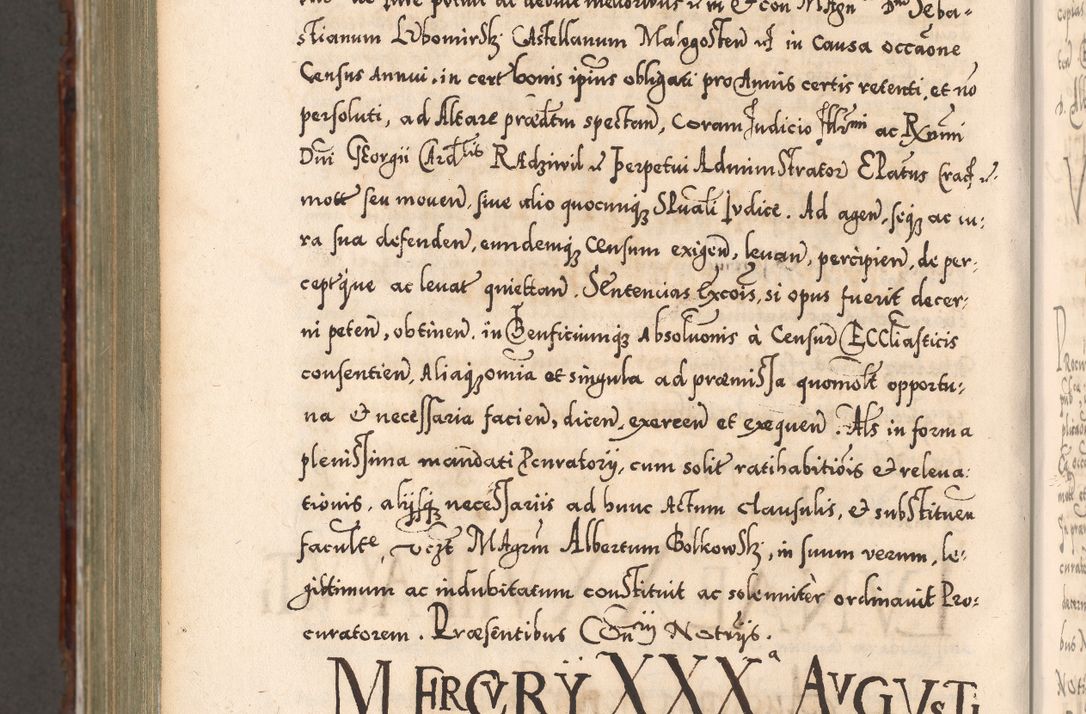 stianum Lubomirskj Castellanum Malogosten etc in causa occaone
Census Annui in cert bonis ipius obligati pro Annis certis retenti, et no
persoluti, ad Altare praedtm spectan, coram Judicio Illmi ac Rmi
Dni Georgii Card lis Radziwil et Perpetui Administrator EPatus Crac et
mott seu moven, sive alio quocunq3 SPuali Judice. Ad agen, seq3 ac iu:
ra sua defenden, eundemq3 Censum exigen, levan, percipien, de per:
ceptque ac levat quiettan. Sentencias Excois, si opus fuerit decer:
ni peten, obtinen. in Beneficiumq3 Absoluonis à Censur Ecclasticis
consentien, Aliaq3 omia et singula ad praemissa quomolt opportu:
na & necessaria facien, dicen, exercen et exequen. Als in forma
plenissima mandati Pcuratorij, cum solit ratihabitiois & releva:
tionis, alijsq3 necessariis ad hunc Actum clausulis, & substituen
facult, vczt MAgrm Albertum Golkowskj, in suum verum, le:
gittimum ac indubitatum constituit ac solemniter ordinavit Pro:
curatorem. Praesentibus Connrij Notrijs.
MERCURY XXXa AUGUSTI